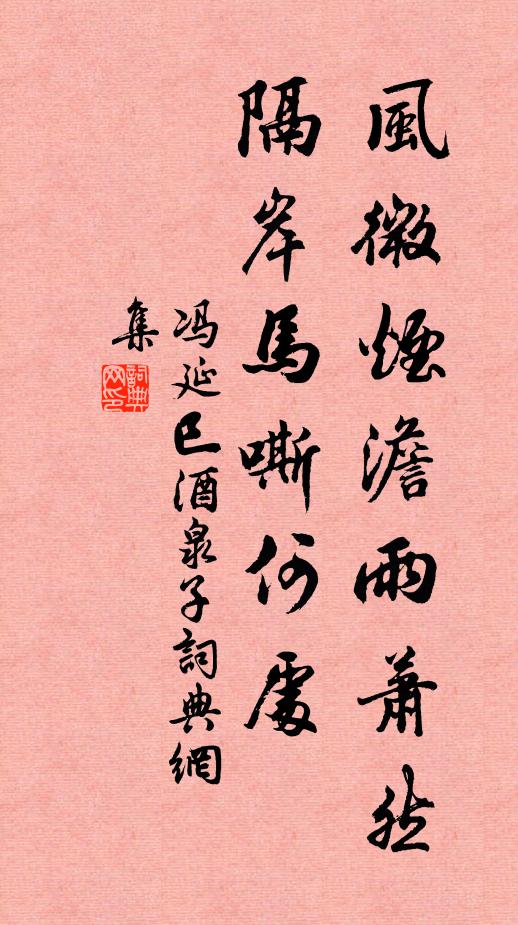 風微煙澹雨蕭然
隔岸馬嘶何處
冯延巳酒泉子詞典網
集
詞典
网印